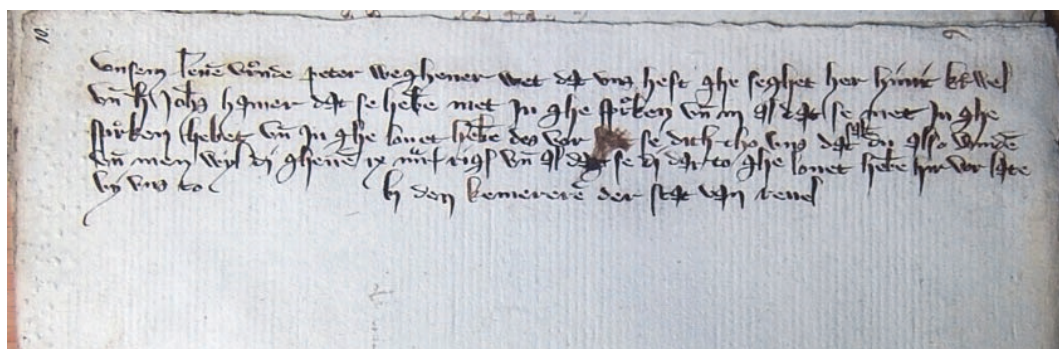 10.
vnsem leuē vrͦnde peter weghener wet dat vns heft ghe seghet her hinric krwel
vn̄ h' Joh̄s hamer dat se hebbē met Jn ghe sprͦken vn̄ al dat se met Jn ghe
sprͦken hebbet vn̄ Jn ghe louet hebbē des vor se dich tho vns dat du also vindē
vn̄ men wyl di gheuē ix mrͨ rigs vn̄ al dat se di dar to ghe louet hebbē hir vor late
wy vns to bi den kemererē der stat van reuel